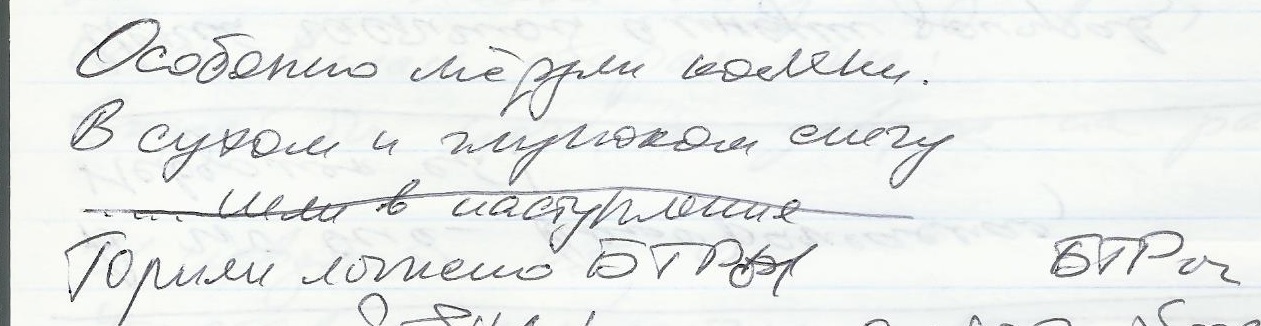 Особенно мёрзли колени.
В сухом и глубоком снегу
..... шли в наступление
Горели БТРы БТРы